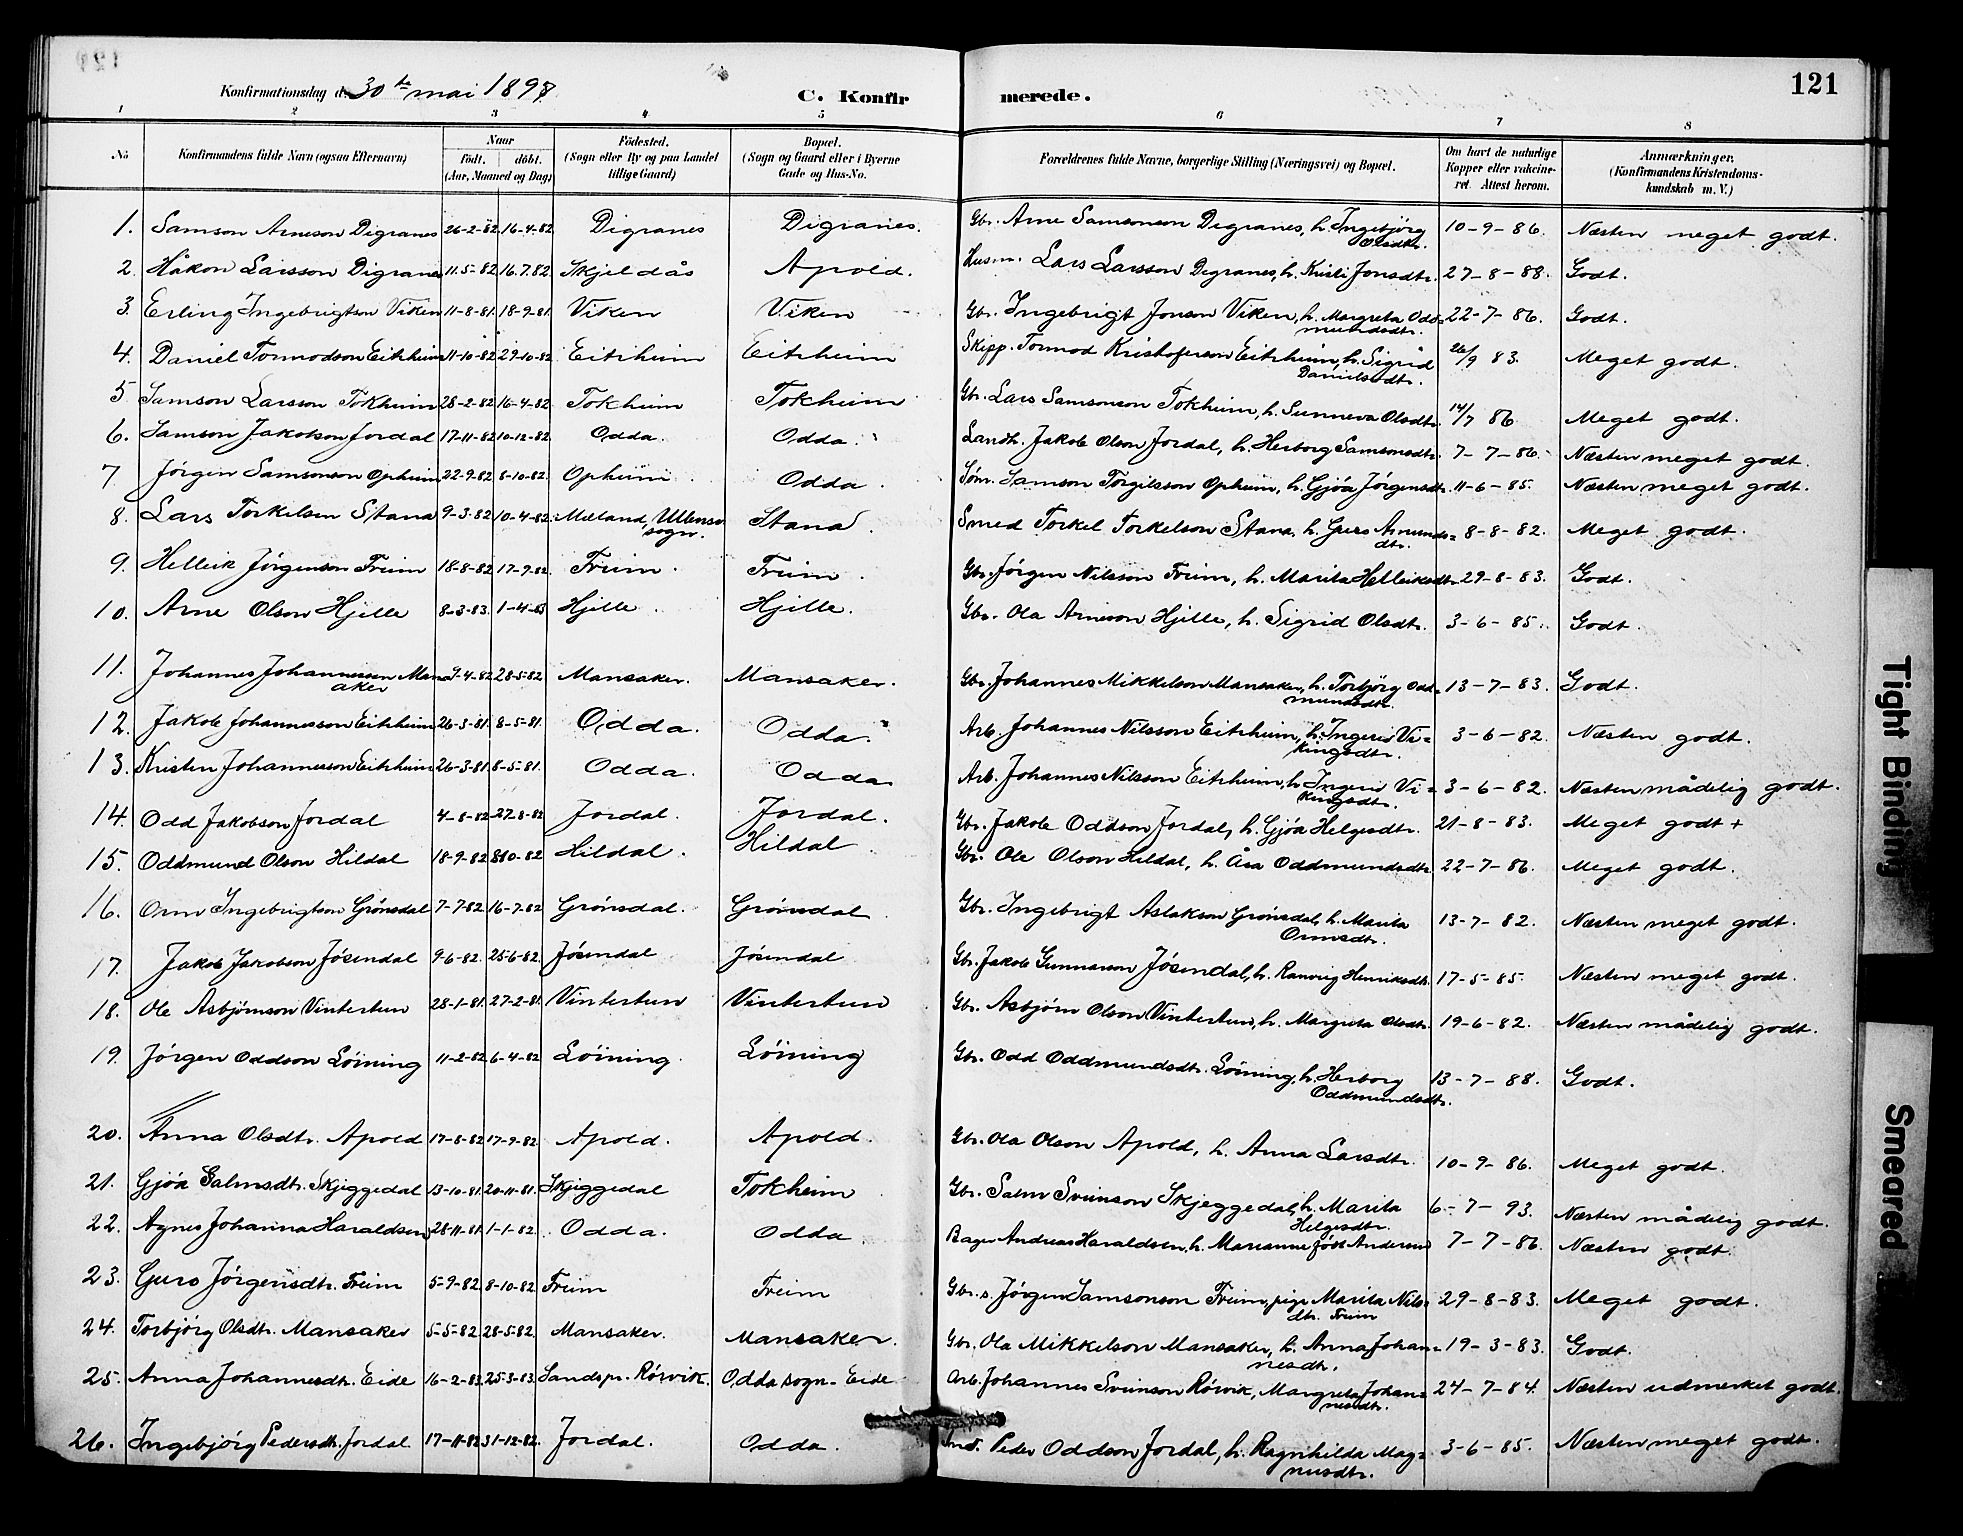 121
Konfirmationsdag d. 30te mai 1897.
C. Konfir merede.
1 2 3 4 5 6 7 8
No
Konfirmandens fulde Navn (ogsaa Efternavn)
Naar
født. døbt.
(Aar, Maaned og Dag)
Fødested.
(Sogn eller By og paa Landet
tillige Gaard)
Bopæl.
(Sogn og Gaard eller i Byerne
Gade og Hus-No.
Forældrenes fulde Navne, borgerlige Stilling (Næringsvei) og Bopæl.
Om havt de naturlige
Kopper eller vakcine-
ret. Attest herom.
Anmærkninger.
(Konfirmandens Kristendoms-
kundskab m. V.)
1. Samson Arneson Digranes 26-2-82 16-4-82 Digranes Digranes. Gbr. Arne Samsonson Digranes, h. Ingebjørg Olsdtr. 10-9-86. Næsten meget godt.
2. Håkon Larsson Digranes 11-5-82 16.7.82 Skjeldås Apold. Husm. Lars Larsson Digranes, h. Kristi Jonsdtr. 27-8-88. Godt.
3. Erling Ingebrigtson Viken 11-8-81. 18-9-81. Viken Viken Gbr. Ingebrigt Jonson Viken, h. Margreta Odd=
mundsdtr. 22-7-86. Godt.
4. Daniel Tormodson Eitrheim 11-10-82 29-10-82. Eitrheim Eitrheim Skipp. Tormod Kristoferson Eitrheim, h. Sigrid
Danielsdtr. 26/9 83. Meget godt.
5 Samson Larsson Tokheim 28-2-82 16-4-82. Tokheim Tokheim Gbr. Lars Samsonson Tokheim, h. Sunneva Olsdtr. 14/7 86 Meget godt.
6. Samson Jakobson Jordal 17-11-82 10-12-82. Odda. Odda. Landh. Jakob Olson Jordal, h. Herborg Samsonsdtr. 7-7-86. Næsten meget godt.
7 Jørgen Samsonson Opheim 22-9-82 8-10-82. Opheim Odda. Samson Torgilsson Opheim, h. Gjøa Jørgensdtr. 11-6-85. Næsten meget godt.
8. Lars Torkelsen Stana 9-3-82 10-4-82. Mæland, Ullensv.
sogn. Stana. Smed Torkel Torkelson Stana, h. Guro Amunds=
dtr. 8-8-82. Meget godt.
9. Helleik Jørgenson Freim 18-8-82 17-9-82. Freim. Freim. Gbr. Jørgen Nilsson Freim, h. Marita Helleiksdtr. 29-8-83. Godt.
10. Arne Olson Hjelle 8-3-83. 1-4-83 Hjelle. Hjelle. Gbr. Ola Arneson Hjelle, h. Sigrid Olsdtr. 3-6-85. Godt.
11. Johannes Johannessen Mans
aker 9-4-82 28-5-82. Mansaker. Mansaker. Gbr. Johannes Mikkelson Mansaker, h. Torbjørg Odd=
mundsdtr. 13-7-83. Godt.
12. Jakob Johannesson Eitrheim 26-3-81. 8-5-81. Odda. Odda. Arb. Johannes Nilsson Eitrheim, h. Ingerid Vi=
kingsdtr. 3-6-82. Næsten godt.
13. Kristen Johannesson Eitrheim 26-3-81. 8-5-81. Odda. Odda Arb. Johannes Nilsson Eitrheim, h. Ingerid Vi=
kingsdtr. 3-6-82. Næsten mådelig godt.
14. Odd Jakobson Jordal 4-8-82 27-8-82 Jordal. Jordal. Gbr. Jakob Oddson Jordal, h. Gjøa Helgesdtr. 21-8-83. Meget godt +
15. Oddmund Olson Hildal 18-9-82 8-10-82 Hildal. Hildal Gbr. Ole Olson Hildal, h. Åsa Oddmundsdtr. 22-7-86. Meget godt.
16. Orm Ingebrigtson Grønsdal 7-7-82 16-7-82 Grønsdal. Grønsdal Gbr. Ingebrigt Aslakson Grønsdal, h. Marita
Ormsdtr. 13-7-82. Næsten meget godt.
17. Jakob Jakobson Jøsendal 9-6-82. 25-6-82. Jøsendal Jøsendal Gbr. Jakob Gunnarson Jøsendal, h. Ranveig Henriksdtr. 17-5-85. Næsten meget godt.
18. Ole Asbjørnson Vintertun 28-1-81. 27-2-81. Vintertun Vintertun Gbr. Asbjørn Olson Vintertun, h. Margreta Olsdtr. 19-6-82. Næsten mådelig godt.
19. Jørgen Oddson Løining 11-2-82. 6-4-82 Løining. Løining Gbr. Odd Oddmundsdtr. Løining, h. Herborg
Oddmundsdtr. 13-7-88. Godt.
20. Anna Olsdtr. Apold 17-8-82 17-9-82. Apold. Apold. Gbr. Ola Olson Apold, h. Anna Larsdtr. 10-9-86. Meget godt.
21. Gjøa Salmsdtr. Skjeggedal 13-10-81. 20-11-81. Skjeggedal Tokheim Gbr. Salm Sveinson Skjeggedal, h. Marita
Helgesdtr. 6-7-93. Næsten mådelig godt.
22. Agnes Johanna Haraldsen 28-11-81. 1-1-82. Odda. Odda. Bager Andreas Haraldsen, h. Marianne født Andersen 7-7-86. Næsten godt.
23. Guro Jørgensdtr. Freim 5-9-82. 8-10-82. Freim Freim Gbr. s. Jørgen Samsonson Freim, pige Marita Nils=
dtr. Freim 29-8-83. Meget godt.
24. Torbjørg Olsdtr. Mansaker 5-5-82 28-5-82. Mansaker. Mansaker. Gbr. Ola Mikkelson Mansaker, h. Anna Johan=
nesdtr. 19-3-83. Godt.
25. Anna Johannesdtr. Eide 16-2-83. 25-3-83. Sandspr. Rørvik. Odda sogn- Eide Arb. Johannes Sveinson Rørvik, Margreta Johan=
nesdtr. 24-7-84. Næsten udmerket godt.
26. Ingebjørg Pedersdtr. Jordal 17-11-82 31-12-82. Jordal. Odda. Peder Oddson Jordal, h. Ragnhilda Mag=
nusdtr. 3-6-85. Næsten meget godt.
Tight Binding
Smeared